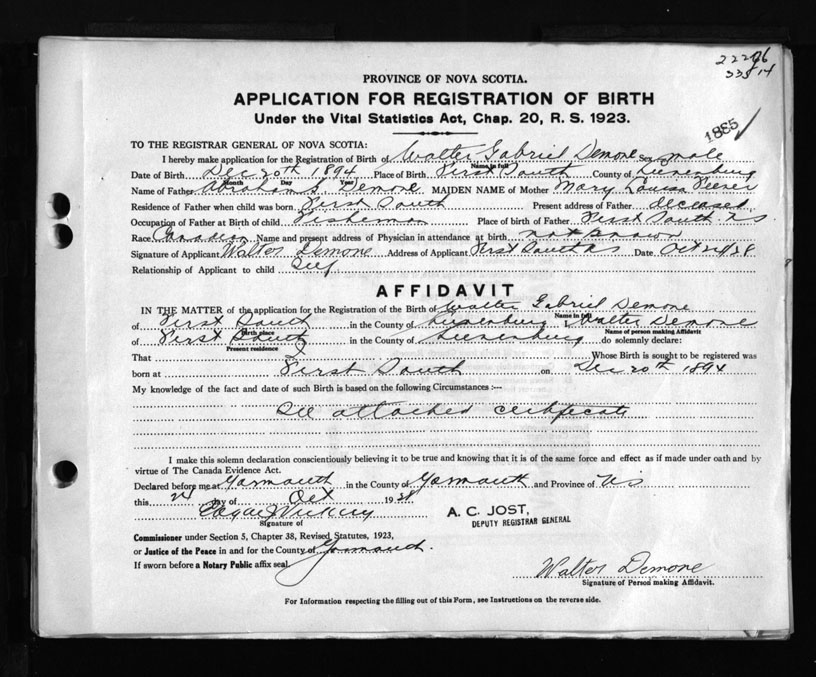 22206
33814
1885
PROVINCE OF NOVA SCOTIA.
APPLICATION FOR REGISTRATION OF BIRTH
Under the Vital Statistics Act, Chap. 20, R. S. 1923.
TO THE REGISTRAR GENERAL OF NOVA SCOTIA:
I hereby make application for the Registration of Birth of Walter Gabriel Demone Sex male
Name in full
Date of Birth Dec 20th 1894 Place of Birth First South County of Lunenburg
Month Day Year
Name of Father Abraham Demone MAIDEN NAME of Mother Mary Louisa
Residence of Father when child was born First South Present address of Father deceased
Occupation of Father at Birth of child Fisherman Place of birth of Father First South NS
Race Canadian Name and present address of Physician in attendance at birth not known
Signature of Applicant Walter Demone Address of Applicant First South NS Date Oct 24/38
Relationship of Applicant to child Self
AFFIDAVIT
IN THE MATTER of the application for the Registration of the Birth of Walter Gabriel Demone
Name in full
of First South in the County of Lunenburg Walter Demone
Birth place Name of person making Affidavit
of First South in the County of Lunenburg do solemnly declare:
Present residence
That Whose Birth is sought to be registered was
born at First South on Dec 20th 1894
My knowledge of the fact and date of such Birth is based on the following Circumstances :—
See attached certificate
I make this solemn declaration conscientiously believing it to be true and knowing that it is of the same force and effect as if made under oath and by
virtue of The Canada Evidence Act.
Declared before me at Yarmouth in the County of Yarmouth and Province of NS
this 24 day of Oct 1938
Signature of
A. C. JOST,
DEPUTY REGISTRAR GENERAL
Commissioner under Section 5, Chapter 38, Revised Statutes, 1923,
or Justice of the Peace in and for the County of Yarmouth.
If sworn before a Notary Public affix seal.
Walter Demone
Signature of Person making Affidavit.
For Information respecting the filling out of this Form, see Instructions on the reverse side.